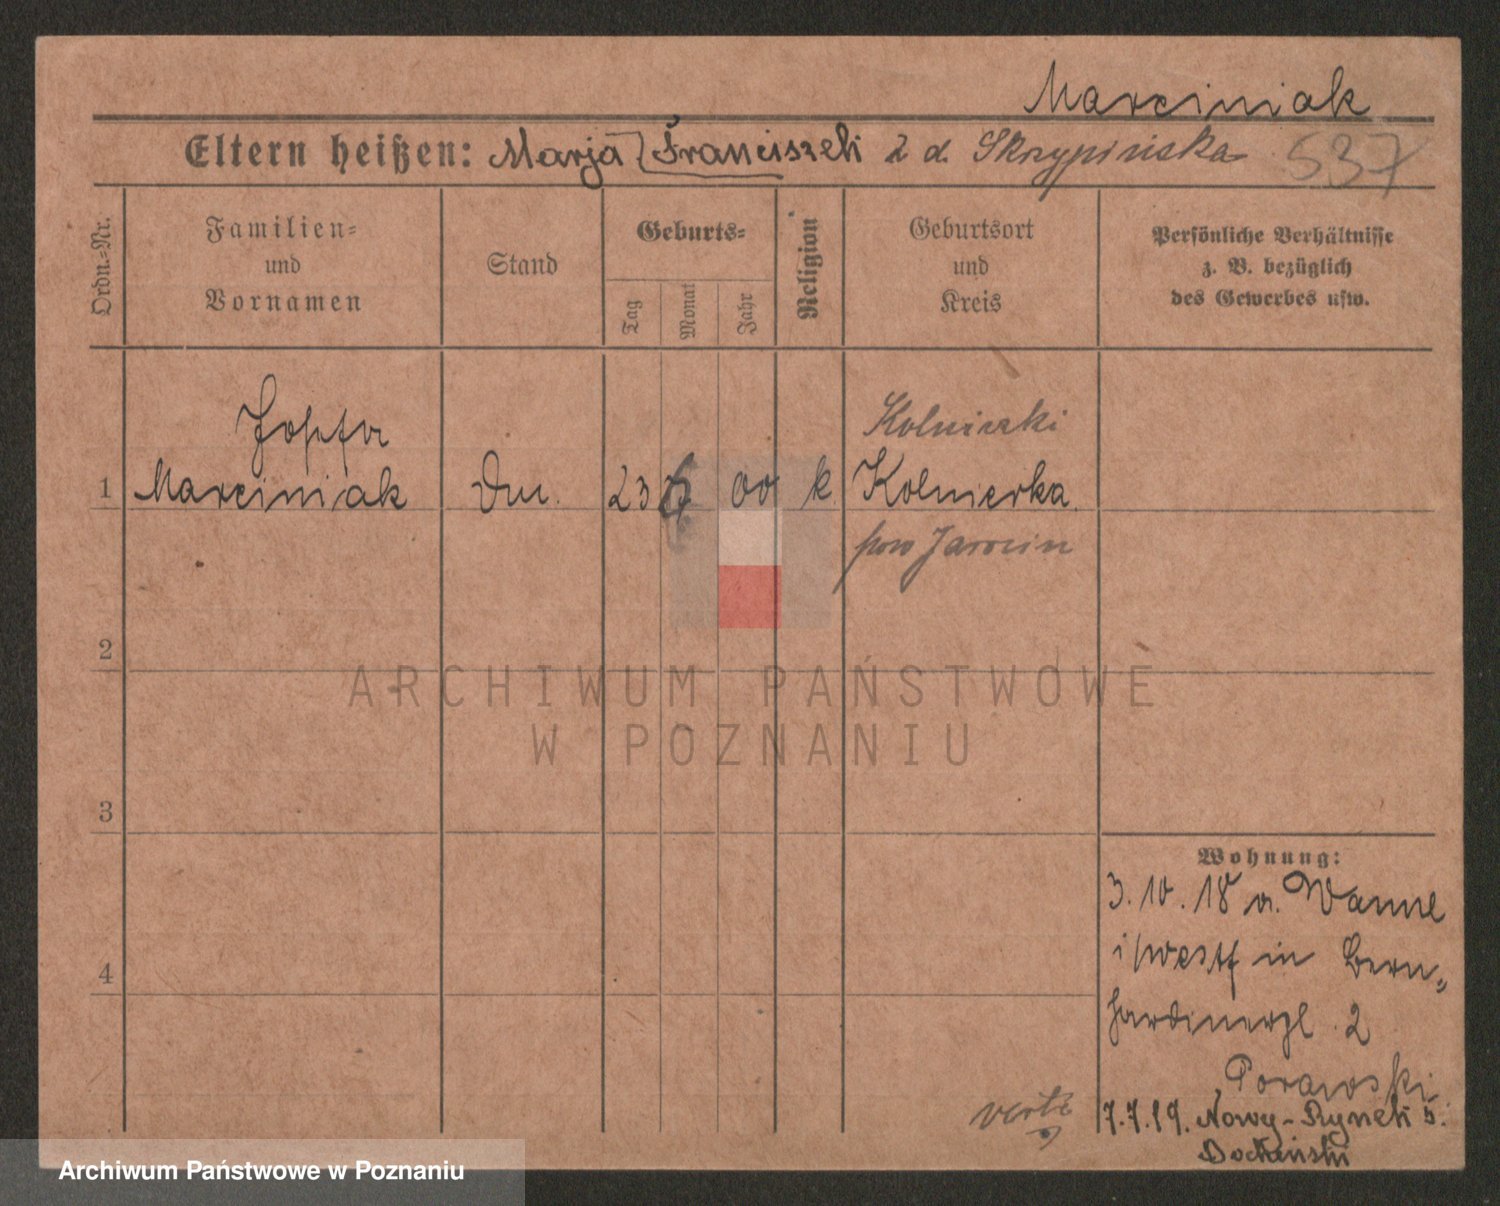 Marciniak
Eltern heißen: Marja Franciszek z d. Skrzypińska 537
Ordn.-Nr.
Familien-
und
Vornamen
Stand
Geburts-
Tag
Monat
Jahr
Religion
Geburtsort
und
Kreis
Persönliche Verhältnisse
z. B. bezüglich
des Gewerbes usw.
Josefa
Kolniczki
1 Marciniak 23 00 k Kolnierka
pow Jarocin
2
ARCHIWUM PAŃSTWOWE
W POZNANIU
3
Wohnung:
3. 10. 18 a. Wanne
i/Westf in Bern-
hardinerpl. 2
Porawski
verte 7.7.19. Nowy-Rynek 5.
Archiwum Państwowe w Poznaniu
4